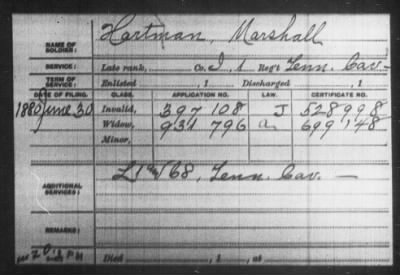 Hartman, Marshall
NAME OF SOLDIER:
SERVICE: Late rank, Co. I, 1 Regt Tenn. Cav.
TERM OF SERVICE: Enlisted , 1 Discharged , 1
DATE OF FILING. CLASS. APPLICATION NO. LAW. CERTIFICATE NO.
1880 June 30 Invalid, 397 108 J 528998
Widow, 931 796 699 148
Minor,
ADDITIONAL SERVICES: 68, Tenn. Cav.
REMARKS:
Died , 1 , at